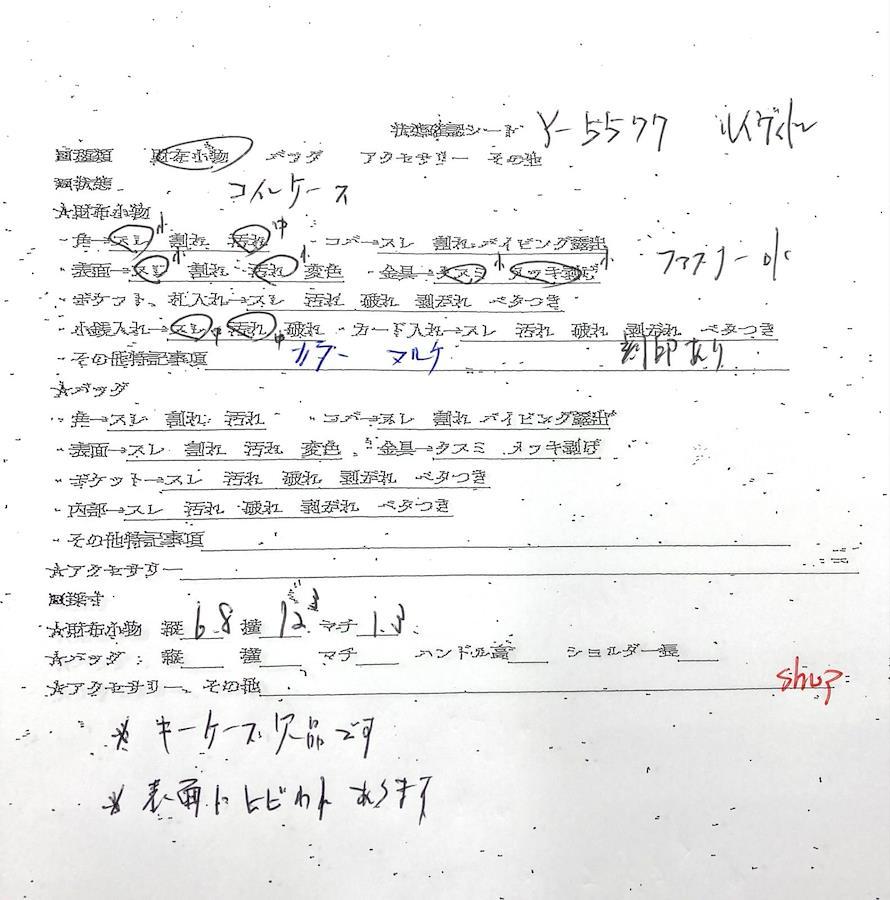 状態確認シート Y-5577 ルイヴィトン
■種類 財布小物 バッグ アクセサリー その他
■状態 コインケース
★財布小物
・角→スレ小 割れ 汚れ中 ・コバ→スレ 割れ パイピング露出
・表面→スレ小 割れ 汚れ小 変色 ・金具→クスミ小 メッキ剥げ小 ファスナー小
・ポケット、札入れ→スレ 汚れ 破れ 剥がれ ベタつき
・小銭入れ→スレ中 汚れ中 破れ ・カード入れ→スレ 汚れ 破れ 剥がれ ベタつき
・その他特記事項 カラー 刻印あり
★バッグ
・角→スレ 割れ 汚れ ・コバ→スレ 割れ パイピング露出
・表面→スレ 割れ 汚れ 変色 ・金具→クスミ メッキ剥げ
・ポケット→スレ 汚れ 破れ 剥がれ ベタつき
・内部→スレ 汚れ 破れ 剥がれ ベタつき
・その他特記事項
★アクセサリー
■採寸
★財布小物 縦 6.8 横 12 マチ 1.3
★バッグ:縦 横 マチ ハンドル高 ショルダー長
★アクセサリー、その他
shop
※ キーケース欠品です
※ 表面にヒビわれあります